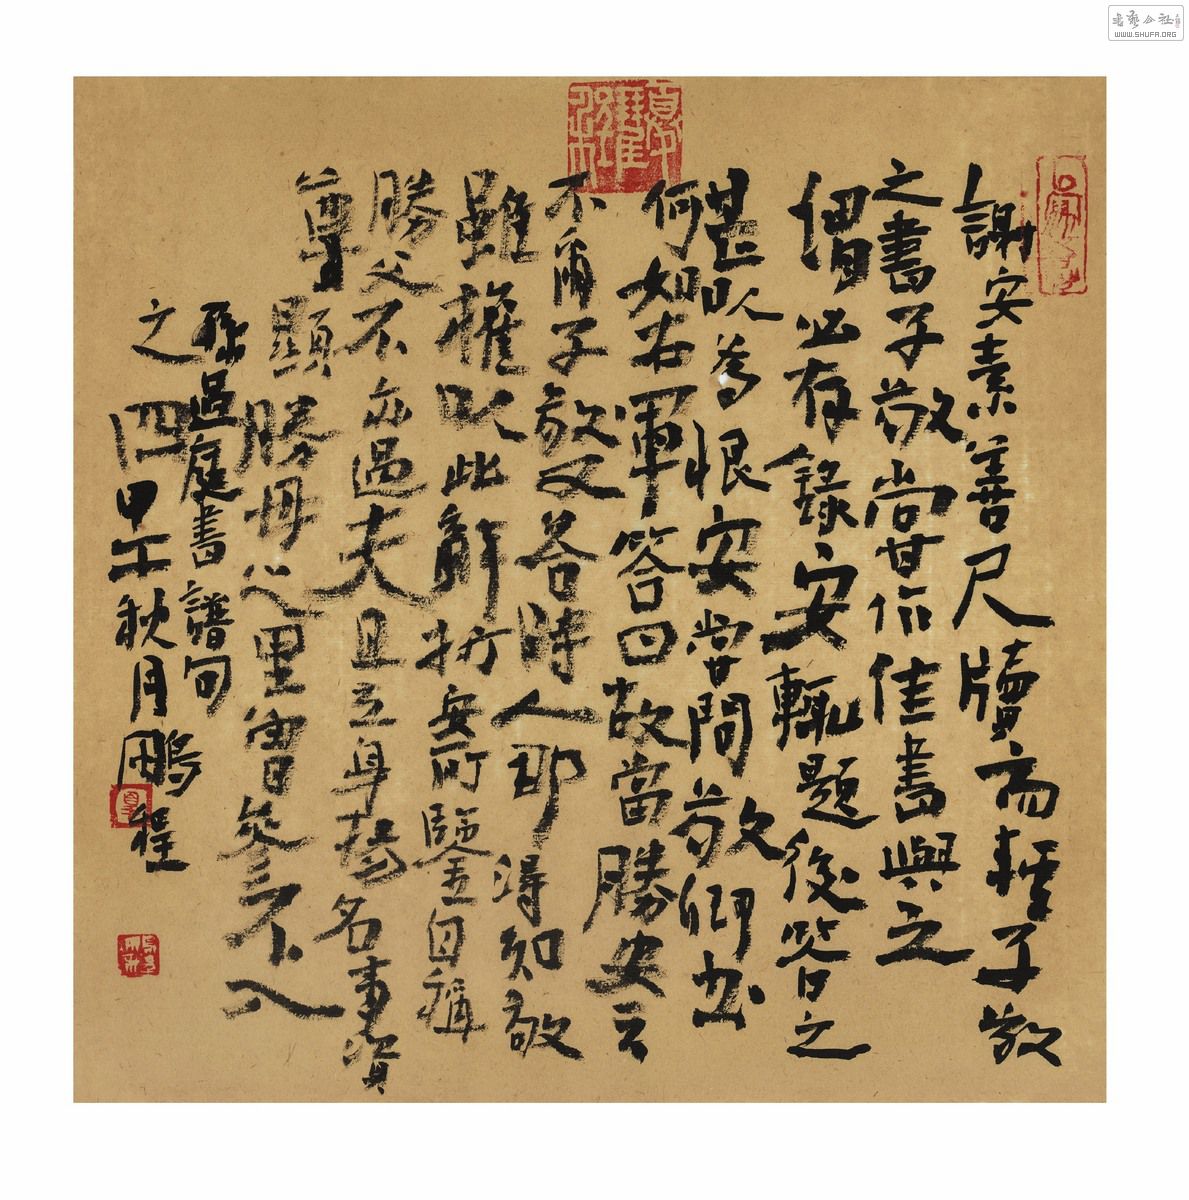 謝安素善尺牘而輕子敬
之書子敬嘗作佳書與之
謂必存錄安輒題後答之
甚以為恨安嘗問敬卿書
何如右軍答曰故當勝安云
不爾子敬又答時人那得知敬
雖權以此辭折安所鑒自稱
勝父不亦過夫且立身揚名事資
尊顯勝母之里曾參不入
孫過庭書譜句
之四甲午秋月鵬程
書藝公社
WWW.SHUFA.ORG